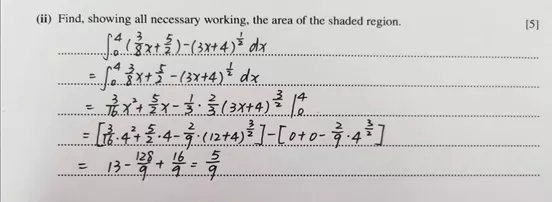 (ii) Find, showing all necessary working, the area of the shaded region. [5]
∫₀⁴ (3/8 x + 5/2) - (3x+4)^(1/2) dx
= ∫₀⁴ 3/8 x + 5/2 - (3x+4)^(1/2) dx
= 3/16 x² + 5/2 x - 1/3 · 2/3 (3x+4)^(3/2) |₀⁴
= [3/16 · 4² + 5/2 · 4 - 2/9 · (12+4)^(3/2)] - [0+0 - 2/9 · 4^(3/2)]
= 13 - 128/9 + 16/9 = 5/9